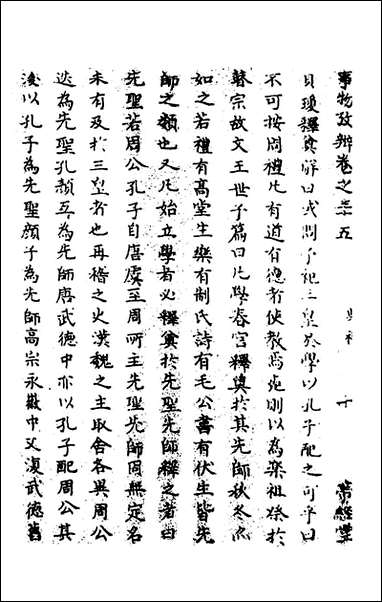 事物攷辨卷之三十五
貝瓊釋奠解曰或問予祀三皇於學以孔子配之可乎曰
不可按周禮凡有道有德者使教焉死則以為樂祖祭於
瞽宗故文王世子篇曰凡學春官釋奠於其先師秋冬亦
如之若禮有高堂生樂有制氏詩有毛公書有伏生皆先
師之類也又凡始立學者必釋奠於先聖先師釋之者曰
先聖若周公孔子自唐虞至周所主先聖先師固無定名
未有及於三皇者也再稽之史漢魏之主取舍各異周公
迭為先聖孔顏互為先師唐武德中亦以孔子配周公其
後以孔子為先聖顏子為先師高宗永徽中又復武德舊